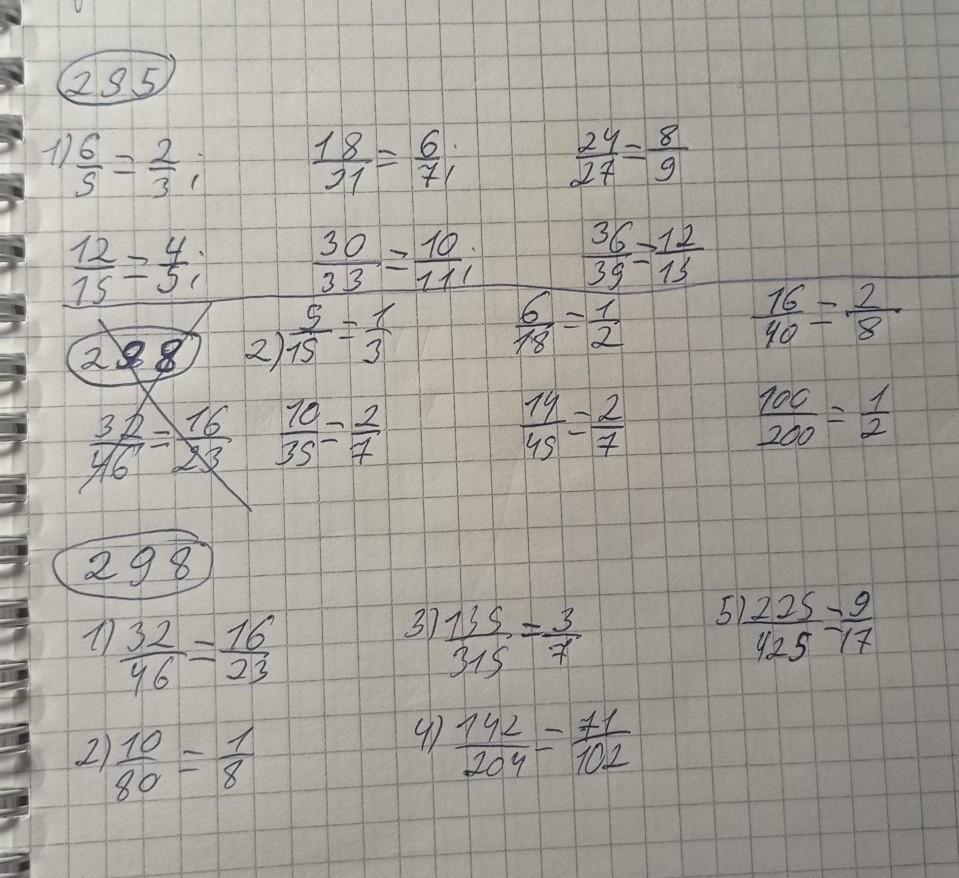 295
1) 6/9 = 2/3; 18/21 = 6/7; 24/27 = 8/9
12/15 = 4/5; 30/33 = 10/11; 36/39 = 12/13
298 2) 5/15 = 1/3 6/18 = 1/2 16/40 = 2/8
32/46 = 16/23 10/35 = 2/7 14/49 = 2/7 100/200 = 1/2
298
1) 32/46 = 16/23 3) 135/315 = 3/7 5) 225/425 = 9/17
2) 10/80 = 1/8 4) 142/204 = 71/102